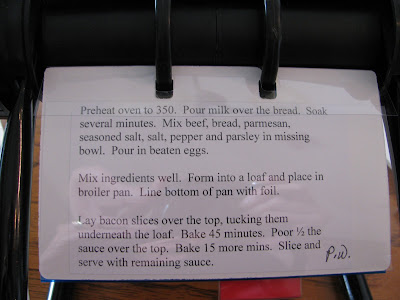 Preheat oven to 350.  Pour milk over the bread.  Soak
several minutes.  Mix beef, bread, parmesan,
seasoned salt, salt, pepper and parsley in missing
bowl.  Pour in beaten eggs.
Mix ingredients well.  Form into a loaf and place in
broiler pan.  Line bottom of pan with foil.
Lay bacon slices over the top, tucking them
underneath the loaf.  Bake 45 minutes.  Poor ½ the
sauce over the top.  Bake 15 more mins.  Slice and
serve with remaining sauce.
P.W.